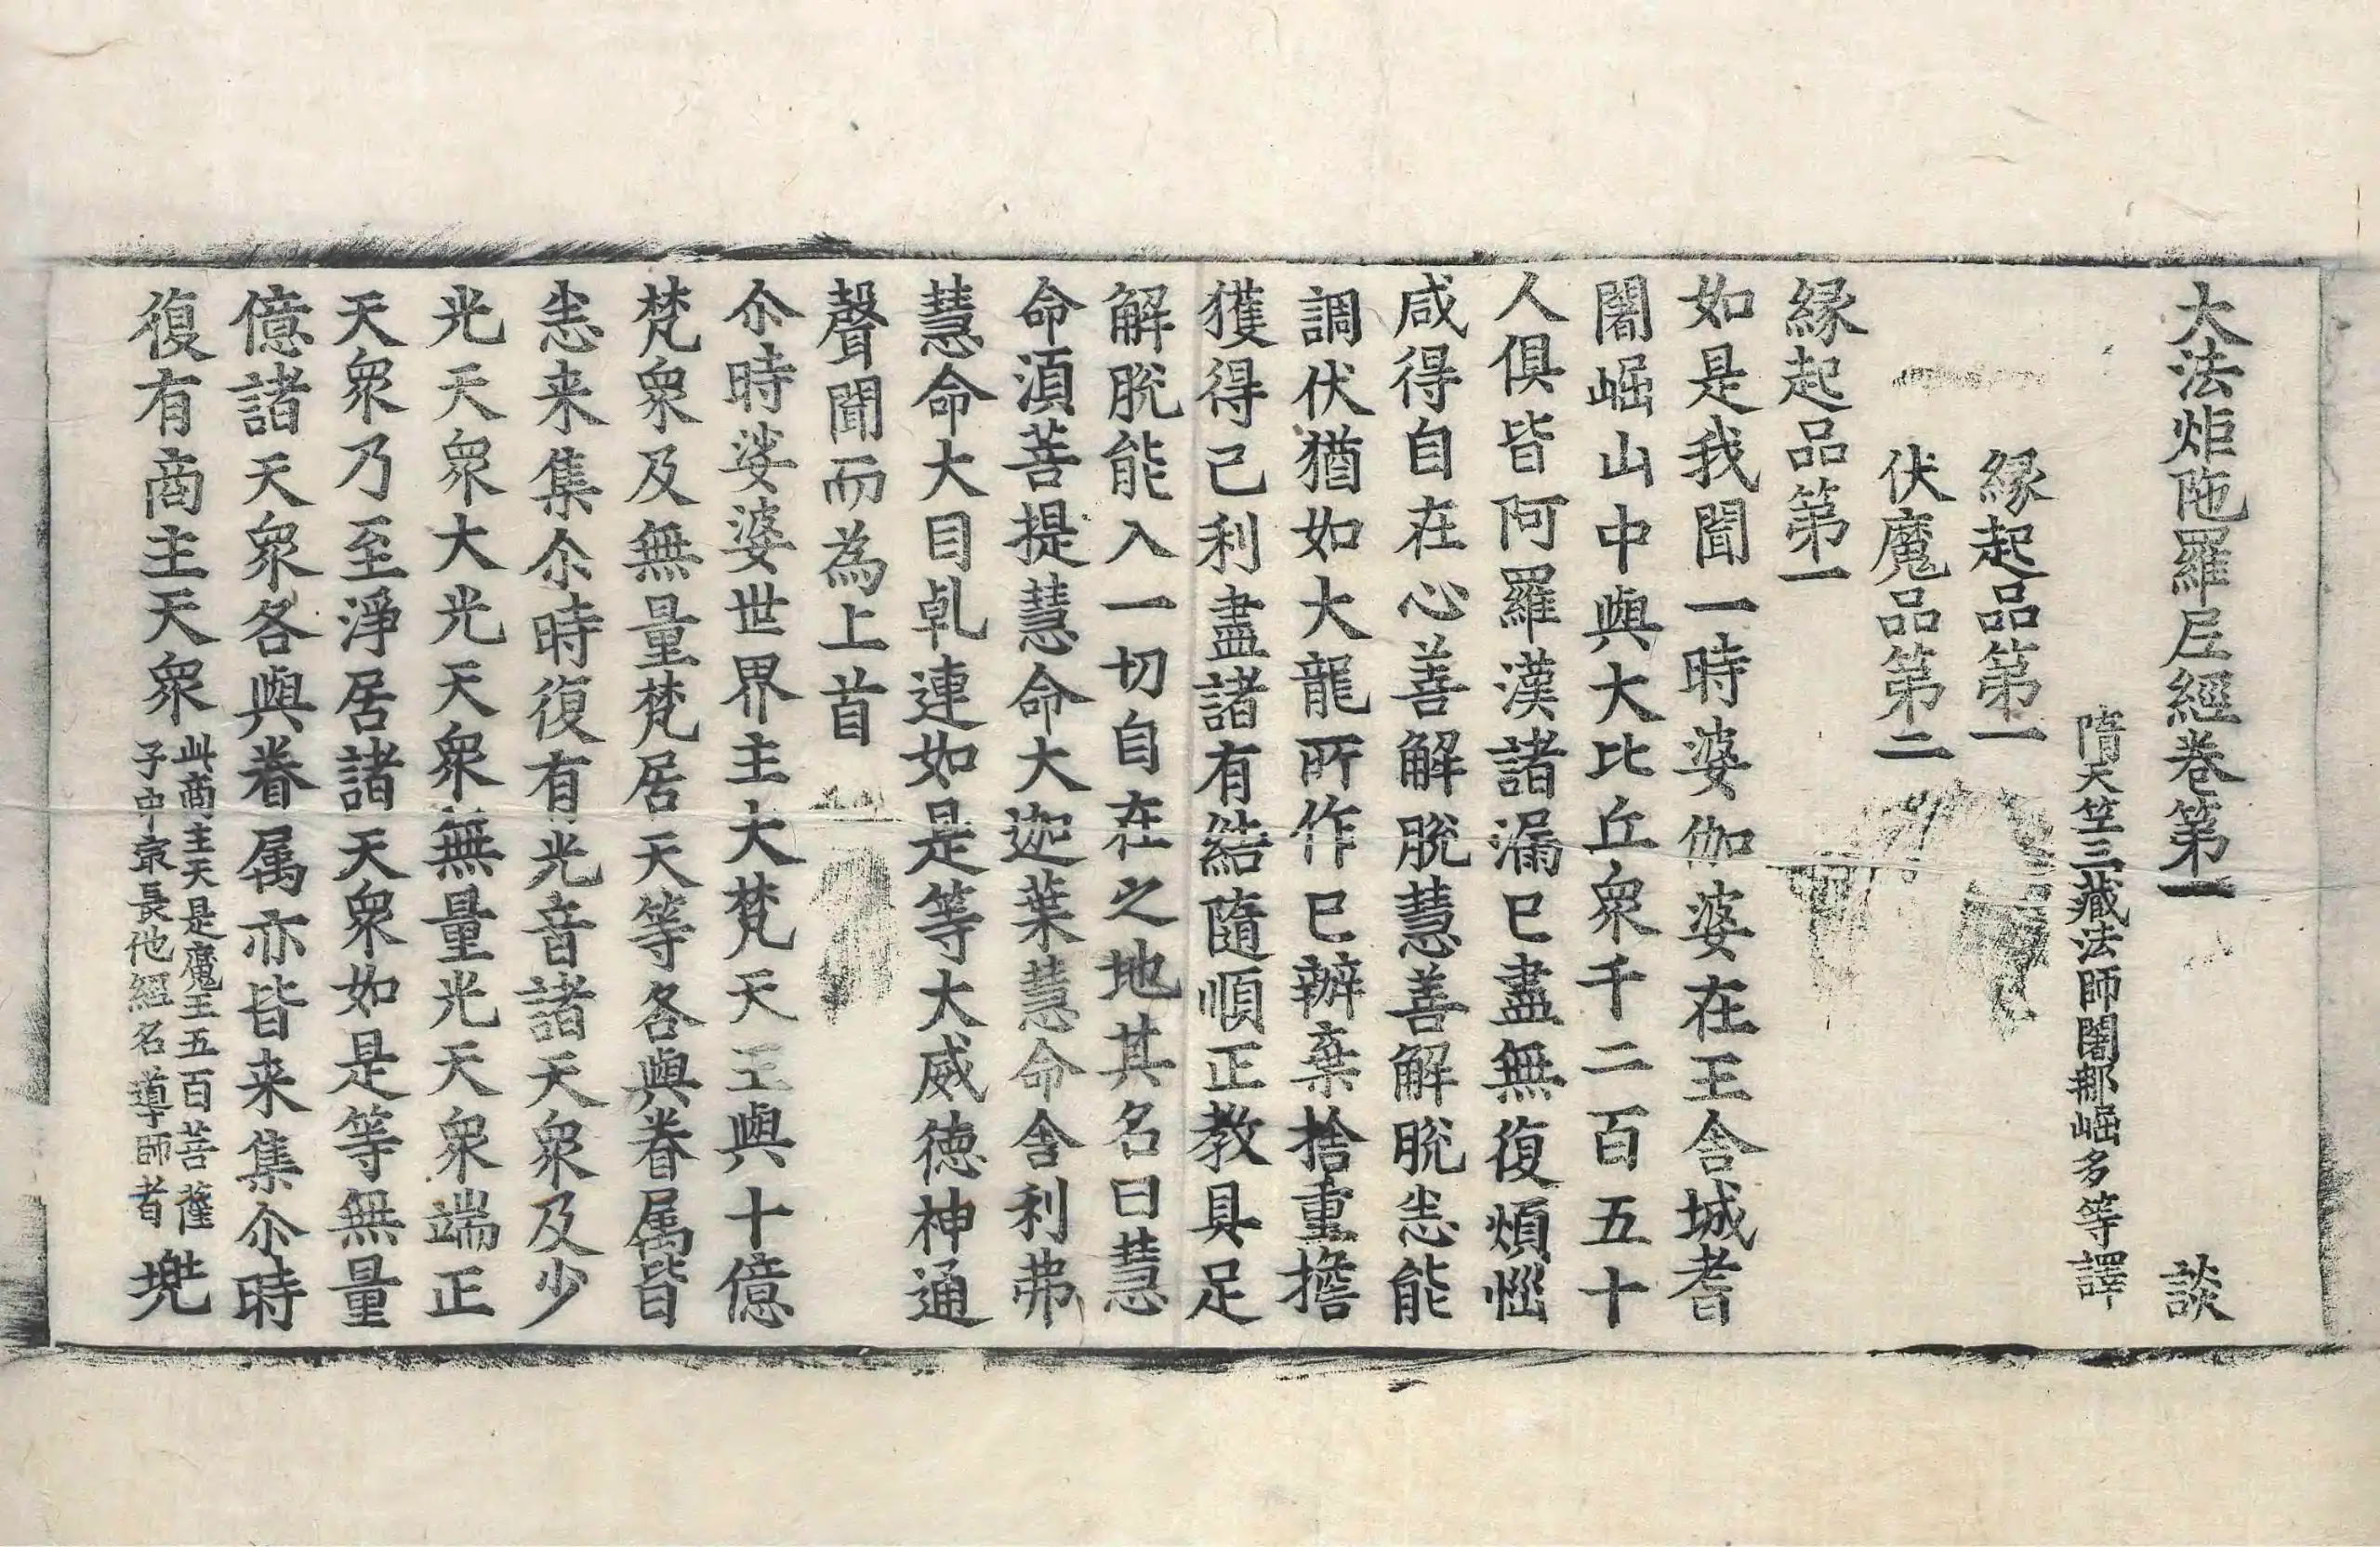 大法炬陁羅尼經卷第一 談
隋天笠三藏法師闍那崛多等譯
縁起品第一
伏魔品第二
縁起品第一
如是我聞一時婆伽婆在王舎城耆
闍崛山中與大比丘衆千二百五十
人俱皆阿羅漢諸漏已盡無復煩惱
咸得自在心善解脫慧善解脫悉能
調伏猶如大龍所作已辦棄捨重擔
獲得己利盡諸有結隨順正教具足
解脫能入一切自在之地其名曰慧
命湏菩提慧命大迦葉慧命舎利弗
慧命大目乹連如是等大威徳神通
聲聞而為上首
尒時娑婆世界主大梵天王與十億
梵衆及無量梵居天等各與眷属皆
悉来集尒時復有光音諸天衆及少
光天衆大光天衆無量光天衆端正
天衆乃至淨居諸天衆如是等無量
億諸天衆各與眷属亦皆来集尒時
復有商主天衆此商主天是魔王五百菩薩
子中㝡長他經名導師者兠